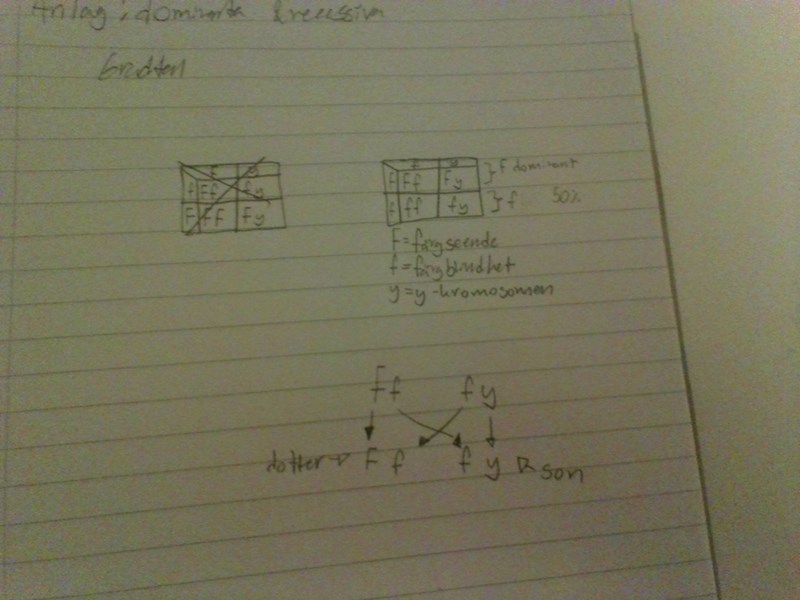 Anlag: dominanta & recessiva
f y
f Ff fy
F Ff Fy
f y
F Ff Fy } F dominant
f ff fy } f 50%
F = färgseende
f = färgblindhet
y = y-kromosomen
Ff fy
dotter → F f f y son